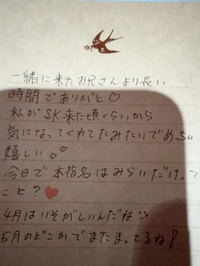 一緒に来たお兄さんより長い
時間でありがと♡
私がSK来た頃くらいから
気になってくれてたみたいでめっちゃ
嬉しい。
今日で本指名はみらいだけ、って
こと？❤
4月はいそがしいんだね
5月のどこかでまたまってるね！